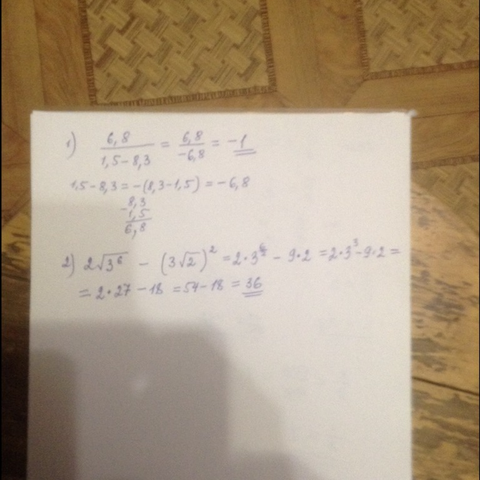 1) 6,8 / 1,5-8,3 = 6,8 / -6,8 = -1
1,5-8,3 = -(8,3-1,5) = -6,8
8,3
- 1,5
6,8
2) 2√3⁶ - (3√2)² = 2·3^(6/2) - 9·2 = 2·3³-9·2 =
= 2·27-18 = 54-18 = 36